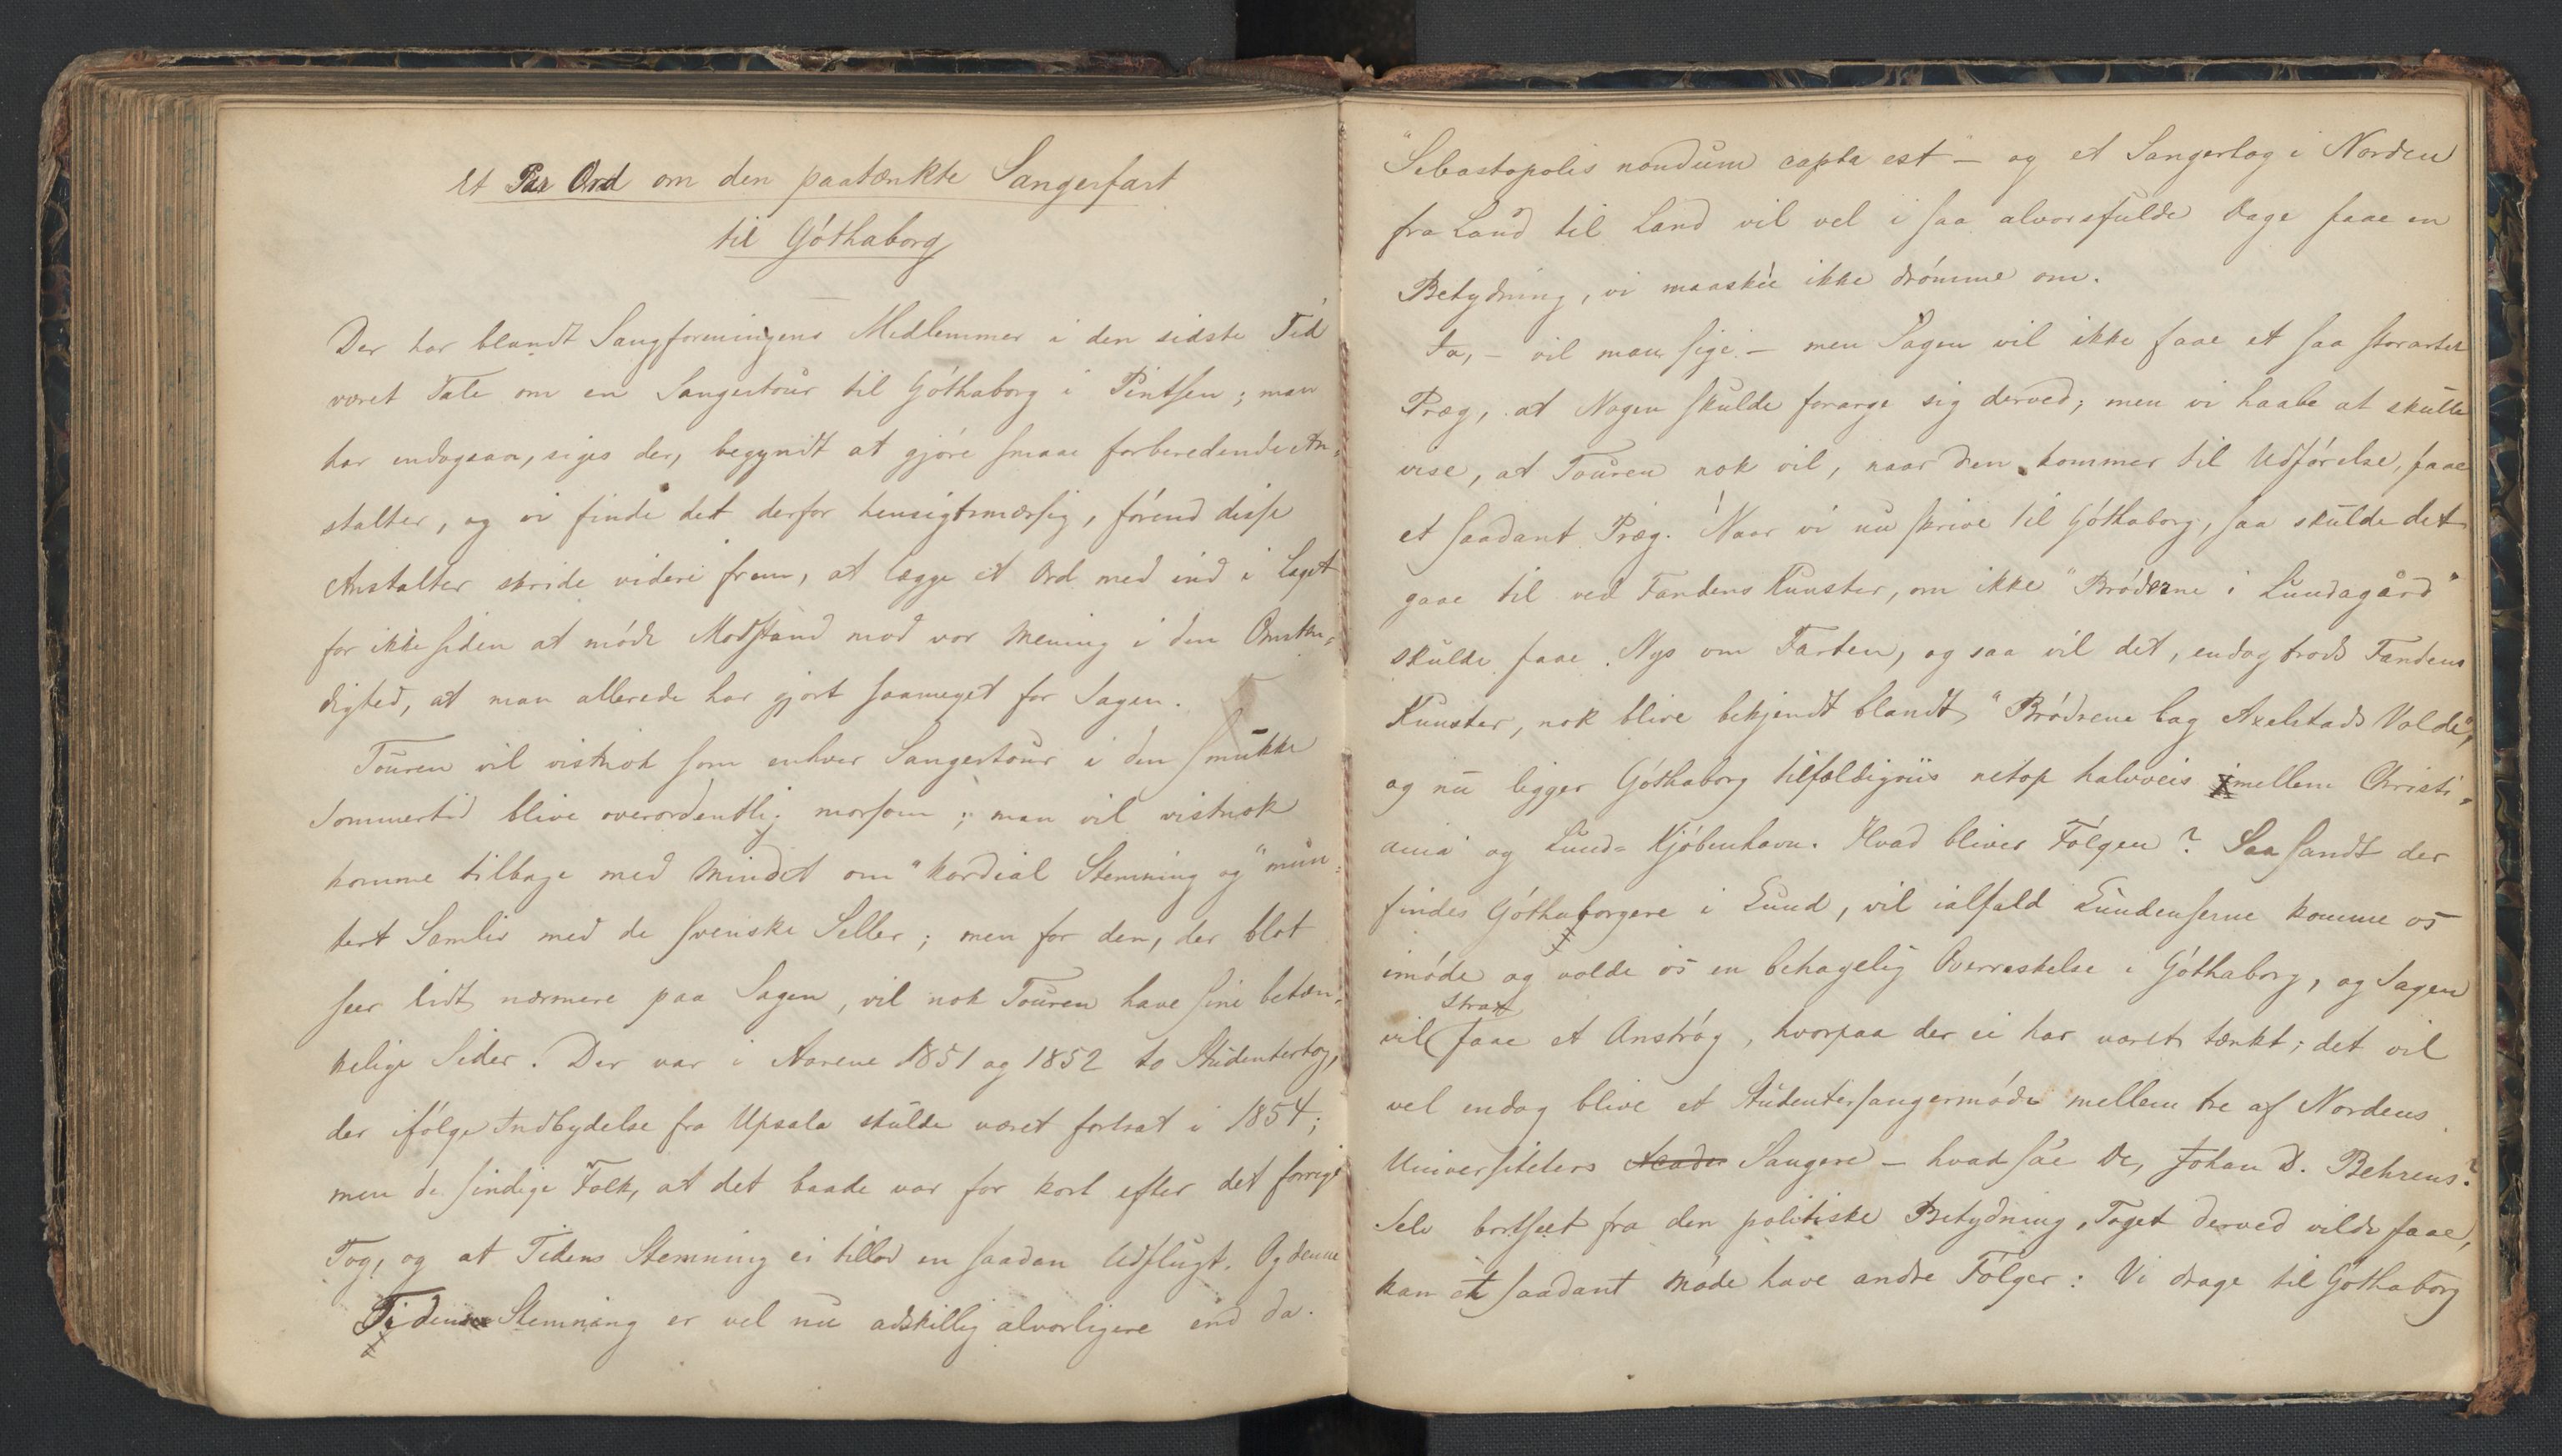 Et Par Ord om den paatænkte Sangerfart
til Göthaborg
Der har blandt Sangforeningens Medlemmer i den sidste Tid
været Tale om en Sangertour til Göthaborg i Pintsen; man
har endogsaa, siges der, begyndt at gjöre smaae forberedende An-
stalter, og vi finde det derfor hensigtsmæssig, förend disse
Anstalter skride videre frem, at lægge et Ord med ind i Laget
for ikke siden at möde Modstand mod vor Mening i den Omstæn-
dighed, at man allerede har gjort saameget for Sagen.
Touren vil vistnok som enhver Sangertour i den smukke
Sommertid blive overordentlig morsom; man vil vistnok
komme tilbage med Mindet om "kordial Stemning og" mun-
tert Samliv med de svenske Seller; men for den, der blot
seer lidt nærmere paa Sagen, vil nok Touren have sine betæn-
kelige Sider. Der var i Aarene 1851 og 1852 to Studentertog,
der ifölge Indbydelse fra Upsala skulde været fortsat i 1854;
men de sindige Folk, at det baade var for kort efter det forrige
Tog, og at Tidens Stemning ei tillod en saadan Udflugt. Og denne
Tidens Stemning er vel nu adskillig alvorligere end da.
"Sebastopolis nondum capta est" - og et Sangertog i Norden
fra Land til Land vil vel i saa alvorsfulde Dage faae en
Betydning, vi maaskée ikke drömme om.
Ja, - vil man sige - men Sagen vil ikke faae et saa storartet
Præg, at Nogen skulde forarge sig derved; men vi haabe at skulle
vise, at Touren nok vil, naar den kommer til Udförelse, faae
et saadant Præg. Naar vi nu skrive til Göthaborg, saa skulde det
gaae til ved Fandens Kunster, om ikke "Bröderne i Lundagård"
skulde faae Nys om Farten, og saa vil det, endog trods Fandens
Kunster, nok blive bekjendt blandt "Brödrene bag Axelstads Volde",
og nu ligger Göthaborg tilfældigviis netop halvveis imellem Christi-
ania og Lund-Kjöbenhavn. Hvad bliver Fölgen? Saa sandt der
findes Göthaborgere i Lund, vil ialfald Lundenserne komme os
imöde og volde os en behagelig Overraskelse i Göthaborg, og Sagen
vil strax faae et Anströg, hvorpaa der ei har været tænkt; det vil
vel endog blive et Studentersangermöde mellem tre af Nordens
Universiteters Sangere - hvad sáe De, Johan D. Behrens?
Selv bortseet fra den politiske Betydning, Toget derved vilde faae,
kan et saadant Möde have andre Fölger: Vi drage til Göthaborg